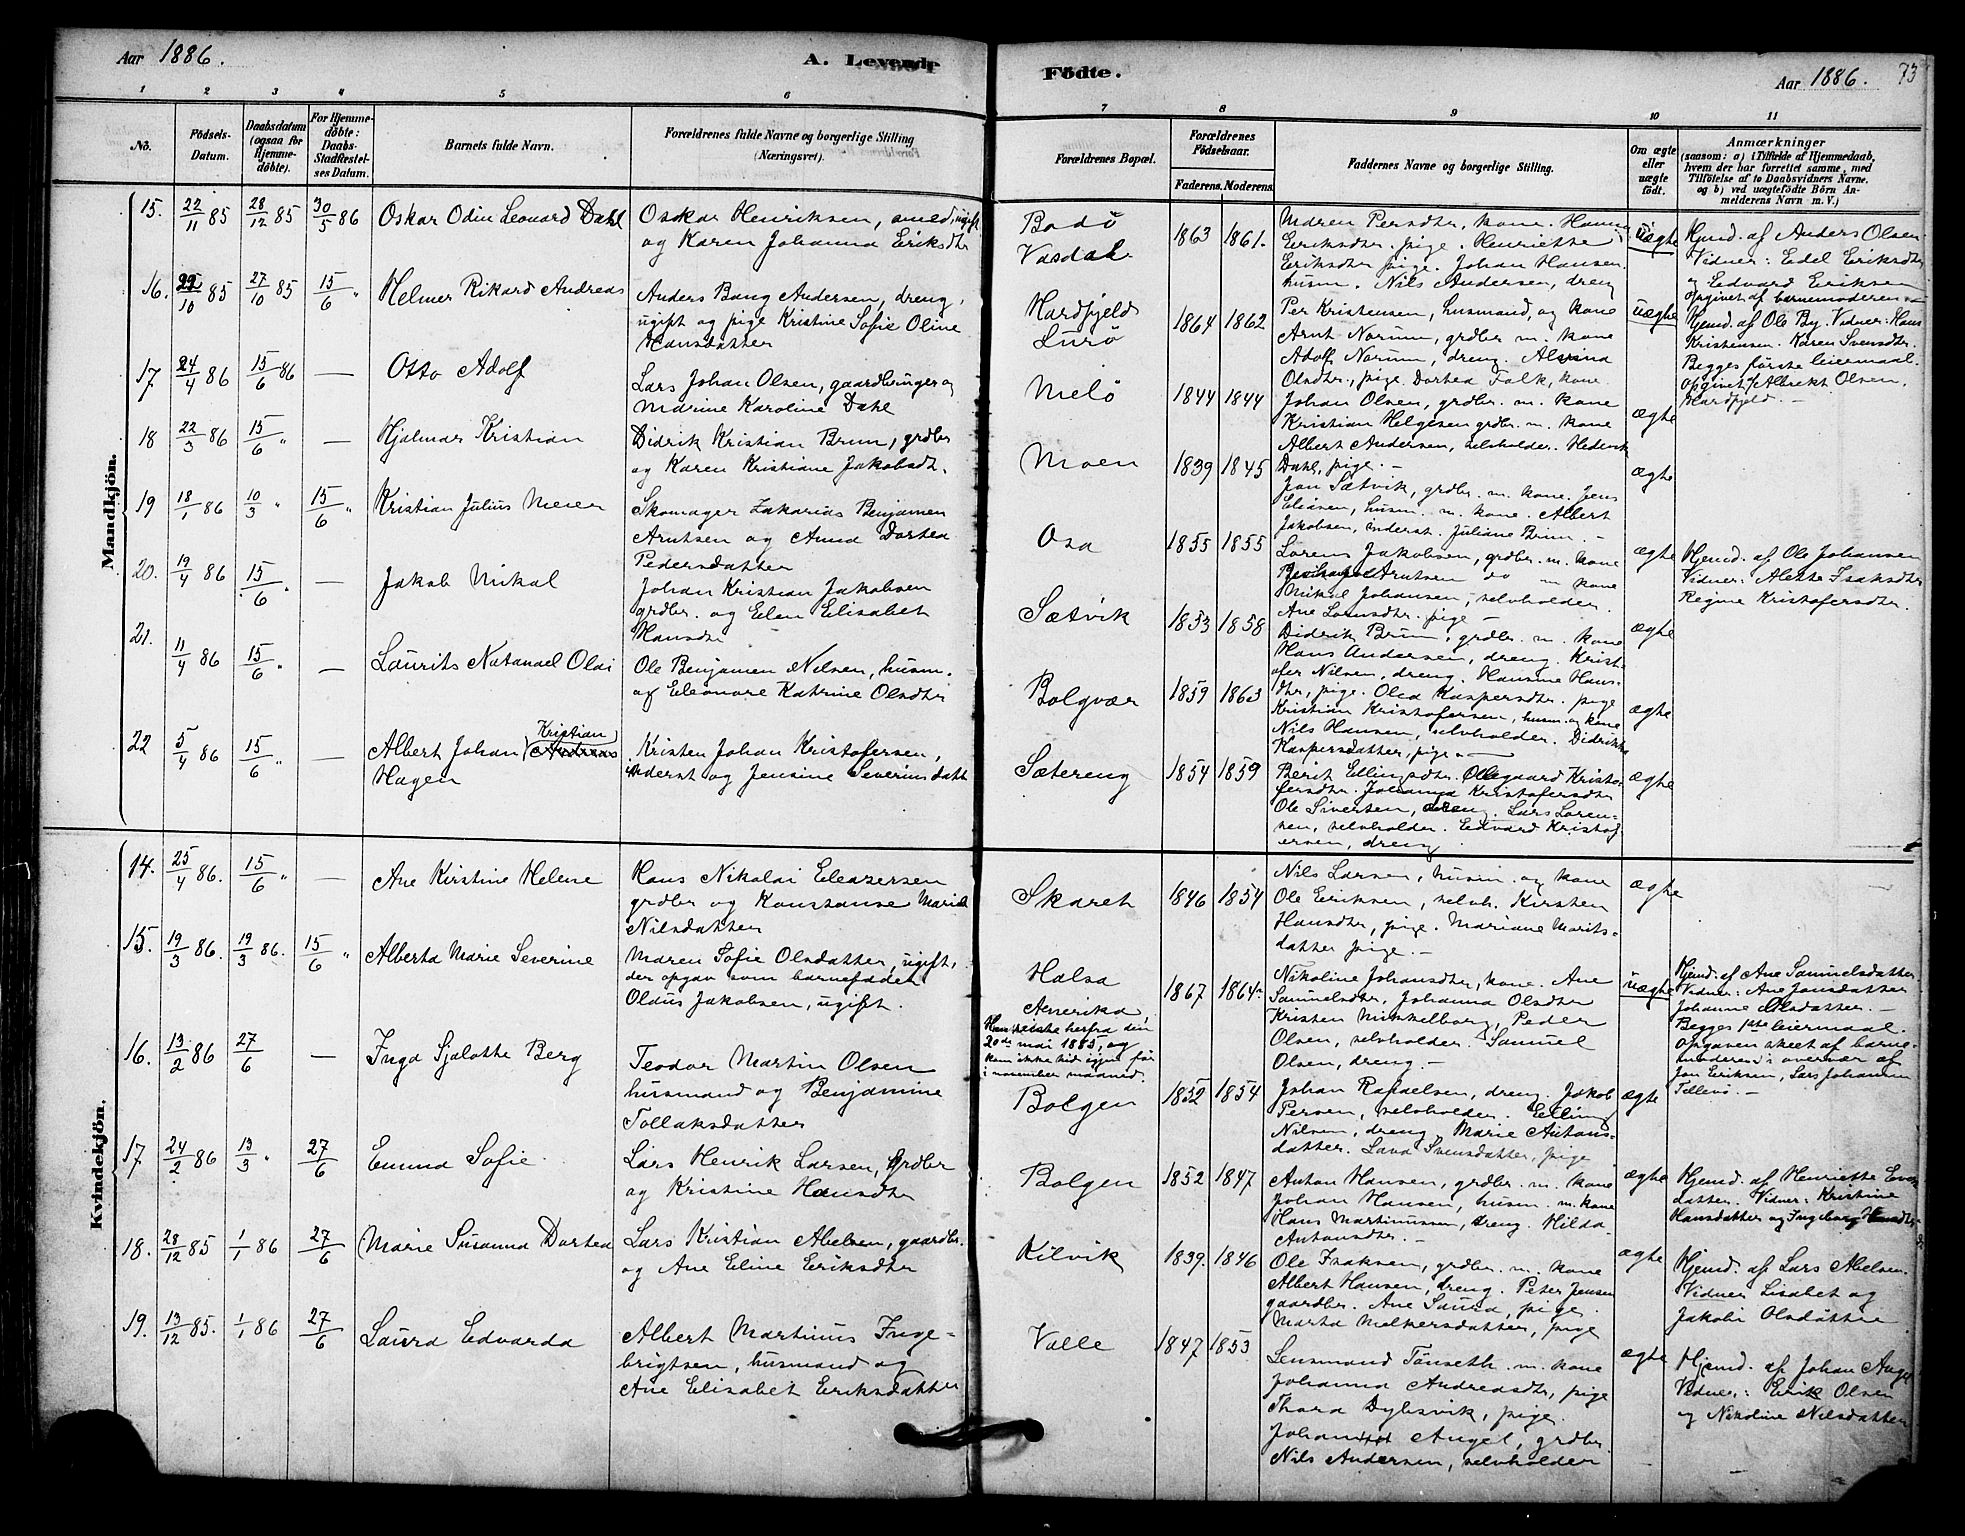 Aar 1886.
A. Levende
1 2 3 4 5 6
No.
Födsels-Datum.
Daabsdatum (ogsaa for Hjemme-döbte).
For Hjemme-döbte: Daabs-Stadfæstel-ses Datum.
Barnets fulde Navn.
Forældrenes fulde Navne og borgerlige Stilling
(Næringsvei).
Mandkjön.
15. 22/11 85 28/12 85 30/5 86 Oskar Odin Leonard Dahl
Oskar Henriksen, ugift
og Karen Johanna Eriksdtr
16. 10 85 27/10 85 15/6 " Helmer Rikard Andreas
Anders Bang Andersen, dreng,
ugift og pige Kristine Sofie Oline
Hansdatter
17 24/4 86 15/6 86 — Otto Adolf
Lars Johan Olsen, gaardbruger og
Marine Karoline Dahl
18 22/3 86 15/6 " — Hjalmar Kristian
Didrik Kristian Brun, grdbr
og Karen Kristiane Jakobsdt.
19 18/1 86 10/3 " 15/6 " Kristian Julius Meier
Skomager Zakarias Benjamen
Arntsen og Anna Dortea
Pedersdatter
20. 19/4 86 15/6 " — Jakob Mikal
Johan Kristian Jakobsen
grdbr. og Elen Elisabet
Hansdtr
21. 11/4 86 15/6 " — Laurits Natanael Olai
Ole Benjamen Nilsen, husm.
og Eleonore Katrine Olsdtr
22 5/4 86 15/6 " — Albert Johan Kristian Andreas
Hagen
Kristen Johan Kristofersen,
inderst og Jensine Severinsdatt
Kvindekjön.
14. 25/4 86. 15/6 " — Ane Kirstine Helene
Hans Nikolai Eleasersen
grdbr og Konstanse Marie
Nilsdatter
15. 19/3 86 19/3 86. 15/6 " Alberta Marie Severine
Maren Sofie Olsdatter, ugift,
der opgav som barnefader
Olaus Jakobsen, ugift.
16. 13/2 86 27/6 — Inga Sjalotte Berg
Teodor Martin Olsen
husmand og Benjamine
Tollaksdatter
17 24/2 86 13/3 " 27/6 Emma Sofie
Lars Henrik Larsen, grdbr
og Kristine Hansdtr
18. 28/12 85 1/1 86 27/6 Marie Susanna Dortea
Lars Kristian Abelsen, gaardbr.
og Ane Eline Eriksdtr
19. 13/12 85. 1/1 86 27/6 Laura Edvarda
Albert Martinus Inge-
brigtsen, husmand og
Ane Elisabet Eriksdatter
Födte.
Aar 1886. 73
7 8 9 10 11
Forældrenes Bopæl.
Forældrenes Födselsaar.
Faderens. Moderens.
Faddernes Navne og borgerlige Stilling.
Om ægte eller uægte födt.
Anmærkninger
(saasom: a) i Tilfælde af Hjemmedaab,
hvem der har forrettet samme, med
Tilföielse af to Daabsvidners Navne,
og b) ved uægtefödte Börn An-
melderens Navn m. V.)
Bodö
Vasdal
1863 1861.
Maren Persdtr, kone. Hanna
Eriksdtr. pige. Henriette
Eriksdtr pige. Johan Hansen.
husm. Nils Andersen, dreng
uægte
Hjmd. af Anders Olsen.
Vidner: Edel Eriksdtr
og Edvard Eriksen
opgivet af barnemoderen
Hardfjeld
Lurö
1864 1862
Per Kristensen, husmand, og kone
Arnt Norum, grdbr m. kone
Adolf Norum, dreng.
Olsdtr., pige. Dortea Falk, kone.
uægte
Hjmd. af Ole By. Vidner: Hans
Kristensen. Karen Svensdtr.
Begges förste leiermaal.
opgivet af Albrekt Olsen,
Hardfjeld. —
Melö
1844 1844
Johan Olsen, grdbr. m. kone
Kristian Helgesen grdbr. m. kone
Albert Andersen, selvholder.
Dahl, pige. —
ægte
Moen
1839 1845
Jon Sætvik, grdbr. m. kone. Jens
Eliasen, husm. m. kone. Albert
Jakobsen, inderst. Juliane Brun. —
ægte
Osa
1855 1855
Lorens Jakobsen, grdbr. m. kone
Arntsen do m kone
Mikal Johansen, selvholder.
Ane Lornsdtr. pige —
ægte
Hjemd. af Ole Johansen
Vidner: Alette Isaksdtr
Regine Kristofersdtr.
Sætvik
1853 1858
Didrik Brun, grdbr. m. kone
Hans Andersen, dreng. Krist-
ofer Nilsen, dreng. Hansine Hans-
dtr, pige. Olea Kaspersdtr. pige
ægte
Bolgvær
1859 1863
Kristian Kristofersen, husm. og kone
Nils Hansen, selvholder. Didrikke
Kaspersdatter, pige. —
ægte
Sætereng
1854 1859
Berit Ellingsdtr. Ollegaard Kristo-
fersdtr. Johanna Kristofersdtr
Ole Sivertsen, dreng. Lars Loren-
sen, selvholder. Edvard Kristof-
ersen, dreng.
ægte
Skaret
1846 1854
Nils Larsen, husm. og kone
Ole Eriksen, selvh. Kirsten
Hansdtr, pige. Mariane Morits-
datter pige. —
ægte
Halsa
Amerika,
Han reiste herfra den
20de mai 1885, og
kom ikke hid igjen för
i november maaned.
1867 1864
Nikoline Johansdtr, kone. Ane
Samuelsdtr, Johanna Olsdtr
Kristen Minkelborg, Peder
Olsen, selvholder. Samuel
Olsen, dreng. —
uægte
Hjmd. af Ane Samuelsdatter
Vidner: Ane Jonsdatter
Johanne Olsdatter. —
Begges 1ste leiermaal.
Opgaven skeet af barne-
moderen i overvær af
Jon Eriksen, Lars Johansen
Tellevs. —
Bolgen
1852 1854
Johan Rafaelsen, dreng. Jakob
Persen, selvholder. Elling
Nilsen, dreng. Marie Antons-
datter. Lava Svensdatter, pige
ægte
Bolgen
1852 1847
Anton Hansen, grdbr. m. kone
Johan Hansen, husm. m. kone
Hans Martinussen, dreng. Hilda
Antonsdtr. —
ægte
Hjmd. af Henriette
datter. Vidner: Kristine
Hansdatter og Ingeborg
Kilvik
1839. 1846
Ole Isaksen, grdbr. m. kone
Albert Hansen, dreng. Peter Jensen
gaardbr. Ane Laura, pige.
Marta Melkersdatter, pige
ægte
Hjemd. af Lars Abelsen.
Vidner Lisabet og
Jakobi Olsdatter
Valle
1847 1853
Lensmand Tönseth m. kone
Johanna Andreasdtr, pige
Thora Dybsvik, pige.
Johan Angel, grdbr.
Nils Andersen, selvholder
ægte
Hjemd. af Johan Angel
Vidner: Erik Olsen
og Nikoline Nilsdatter